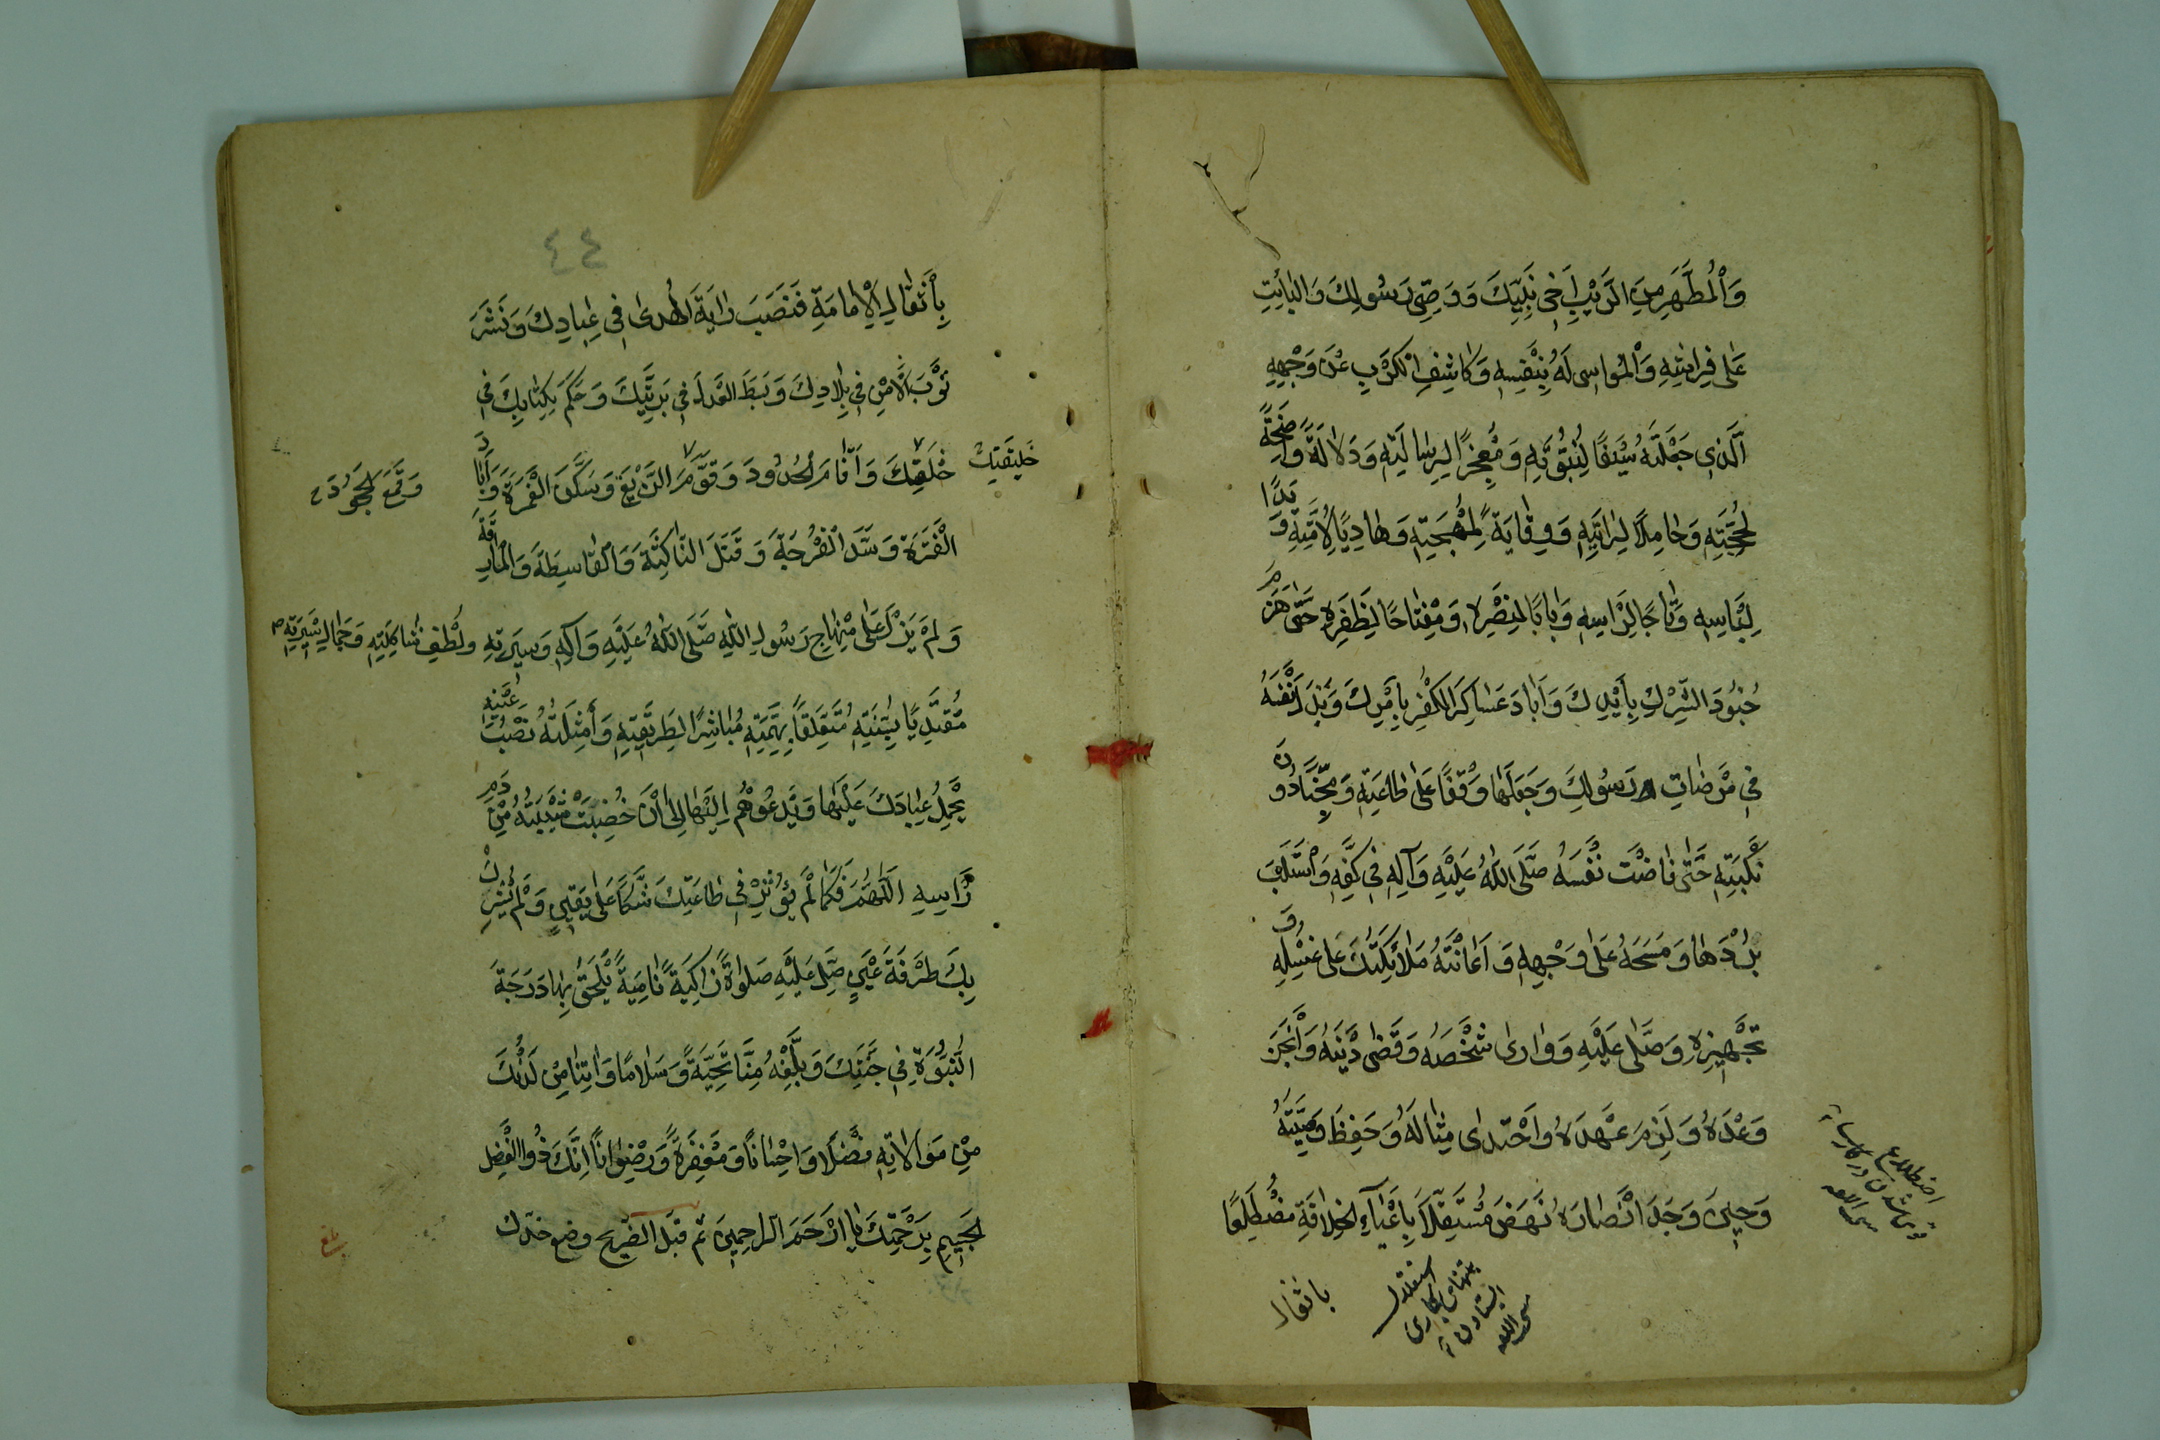 وَالْمُطَهَّرِ مِنَ الرَّيْبِ اَخِي نَبِيِّكَ وَوَصِيِّ رَسُولِكَ وَالْبائِتِ
عَلى فِراشِهِ وَالْمُواسِي لَهُ بِنَفْسِهِ وَكاشِفِ الْكَرْبِ عَنْ وَجْهِهِ
الَّذِي جَعَلْتَهُ سَيْفًا لِنُبُوَّتِهِ وَمُعْجِزًا لِرِسالَتِهِ وَدَلالَةً واضِحَةً
لِحُجَّتِهِ وَحامِلًا لِرايَتِهِ وَوِقايَةً لِمُهْجَتِهِ وَهادِيًا لِاُمَّتِهِ وَيَدًا
لِبَأْسِهِ وَتاجًا لِرَأْسِهِ وَبابًا لِنَصْرِهِ وَمِفْتاحًا لِظَفَرِهِ حَتّى هَزَمَ
جُنُودَ الشِّرْكِ بِاَيْدِكَ وَاَبادَ عَساكِرَ الْكُفْرِ بِاَمْرِكَ وَبَذَلَ نَفْسَهُ
في مَرْضاتِ رَسُولِكَ وَجَعَلَها وَقْفًا عَلى طاعَتِهِ وَمِجَنًّا دُونَ
نَكْبَتِهِ حَتّى فاضَتْ نَفْسُهُ صَلَّى اللهُ عَلَيْهِ وَآلِهِ في كَفِّهِ وَاسْتَلَبَ
بَرْدَها وَمَسَحَهُ عَلى وَجْهِهِ وَاَعانَتْهُ مَلائِكَتُكَ عَلى غُسْلِهِ وَ
تَجْهِيزِهِ وَصَلّى عَلَيْهِ وَوارى شَخْصَهُ وَقَضى دَيْنَهُ وَاَنْجَزَ
وَعْدَهُ وَلَزِمَ عَهْدَهُ وَاحْتَذى مِثالَهُ وَحَفِظَ وَصِيَّتَهُ
وَحِينَ وَجَدَ اَنْصارَهُ نَهَضَ مُسْتَقِلًّا بِاَعْباءِ الْخِلافَةِ مُضْطَلِعًا
باثقال
٤٤
بِاَثْقالِ الْاِمامَةِ فَنَصَبَ رايَةَ الْهُدى في عِبادِكَ وَنَشَرَ
ثَوْبَ الْاَمْنِ في بِلادِكَ وَبَسَطَ الْعَدْلَ في بَرِيَّتِكَ وَحَكَمَ بِكِتابِكَ في
خَلِيقَتِكَ
خَلْقِكَ وَاَقامَ الْحُدُودَ وَقَوَّمَ الزَّيْغَ وَسَكَّنَ الْغَمْرَةَ وَاَبادَ
وَقَمَعَ الْجُحُودَ
الْفَتْرَةَ وَسَدَّ الْفُرْجَةَ وَقَتَلَ النّاكِثَةَ وَالْقاسِطَةَ وَالْمارِقَةَ
وَلَمْ يَزَلْ عَلى مِنْهاجِ رَسُولِ اللهِ صَلَّى اللهُ عَلَيْهِ وَآلِهِ وَسِيرَتِهِ وَلُطْفِ شاكِلَتِهِ وَجَمالِ سِيرَتِهِ
مُقْتَدِيًا بِسُنَّتِهِ مُتَعَلِّقًا بِهِمَّتِهِ مُباشِرًا لِطَرِيقَتِهِ وَاَمْثِلَتُهُ نَصْبُ عَيْنَيْهِ
يَحْمِلُ عِبادَكَ عَلَيْها وَيَدْعُوهُمْ اِلَيْها اِلى اَنْ خُضِبَتْ شَيْبَتُهُ مِنْ دَمِ
رَأْسِهِ اَللّهُمَّ فَكَما لَمْ يُؤْثِرْ في طاعَتِكَ شَكًّا عَلى يَقِينٍ وَلَمْ يُشْرِكْ
بِكَ طَرْفَةَ عَيْنٍ صَلِّ عَلَيْهِ صَلوةً زاكِيَةً نامِيَةً يَلْحَقُ بِها دَرَجَةَ
النُّبُوَّةِ في جَنَّتِكَ وَبَلِّغْهُ مِنّا تَحِيَّةً وَسَلامًا وَاتِنا مِنْ لَدُنْكَ
مِنْ مَوالاتِهِ فَضْلًا وَاِحْسانًا وَمَغْفِرَةً وَرِضْوانًا اِنَّكَ ذُو الْفَضْلِ
الْجَسِيمِ بِرَحْمَتِكَ يا اَرْحَمَ الرّاحِمِينَ ثم قبّل الضّريح وضع خدّك
بلغ